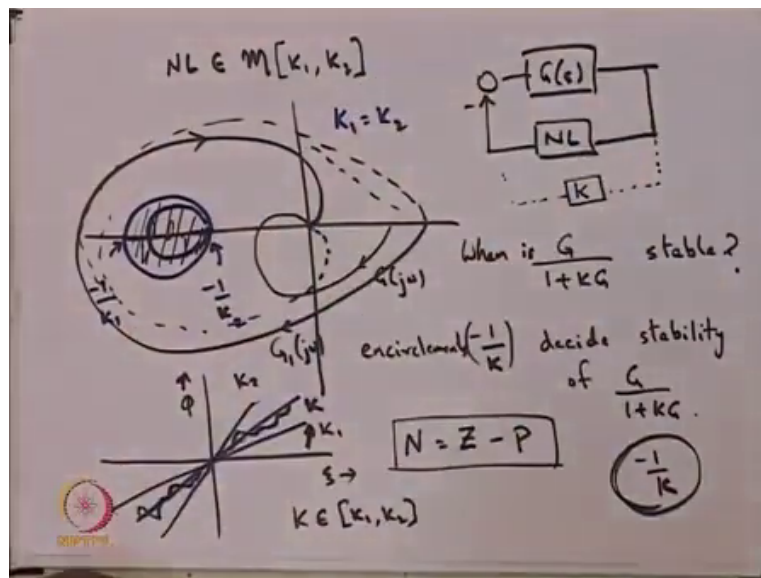 NL ∈ M[K₁, K₂]
K₁ = K₂
G(s)
-
NL
K
When is G/(1+KG) stable?
-1/K₁
-1/K₂
G(jω)
G₁(jω)
encirclements(-1/K) decide stability
of G/(1+KG).
N = Z - P
-1/K
↑
φ
K₂
K
K₁
ξ →
K ∈ [K₁, K₂]
NPTEL